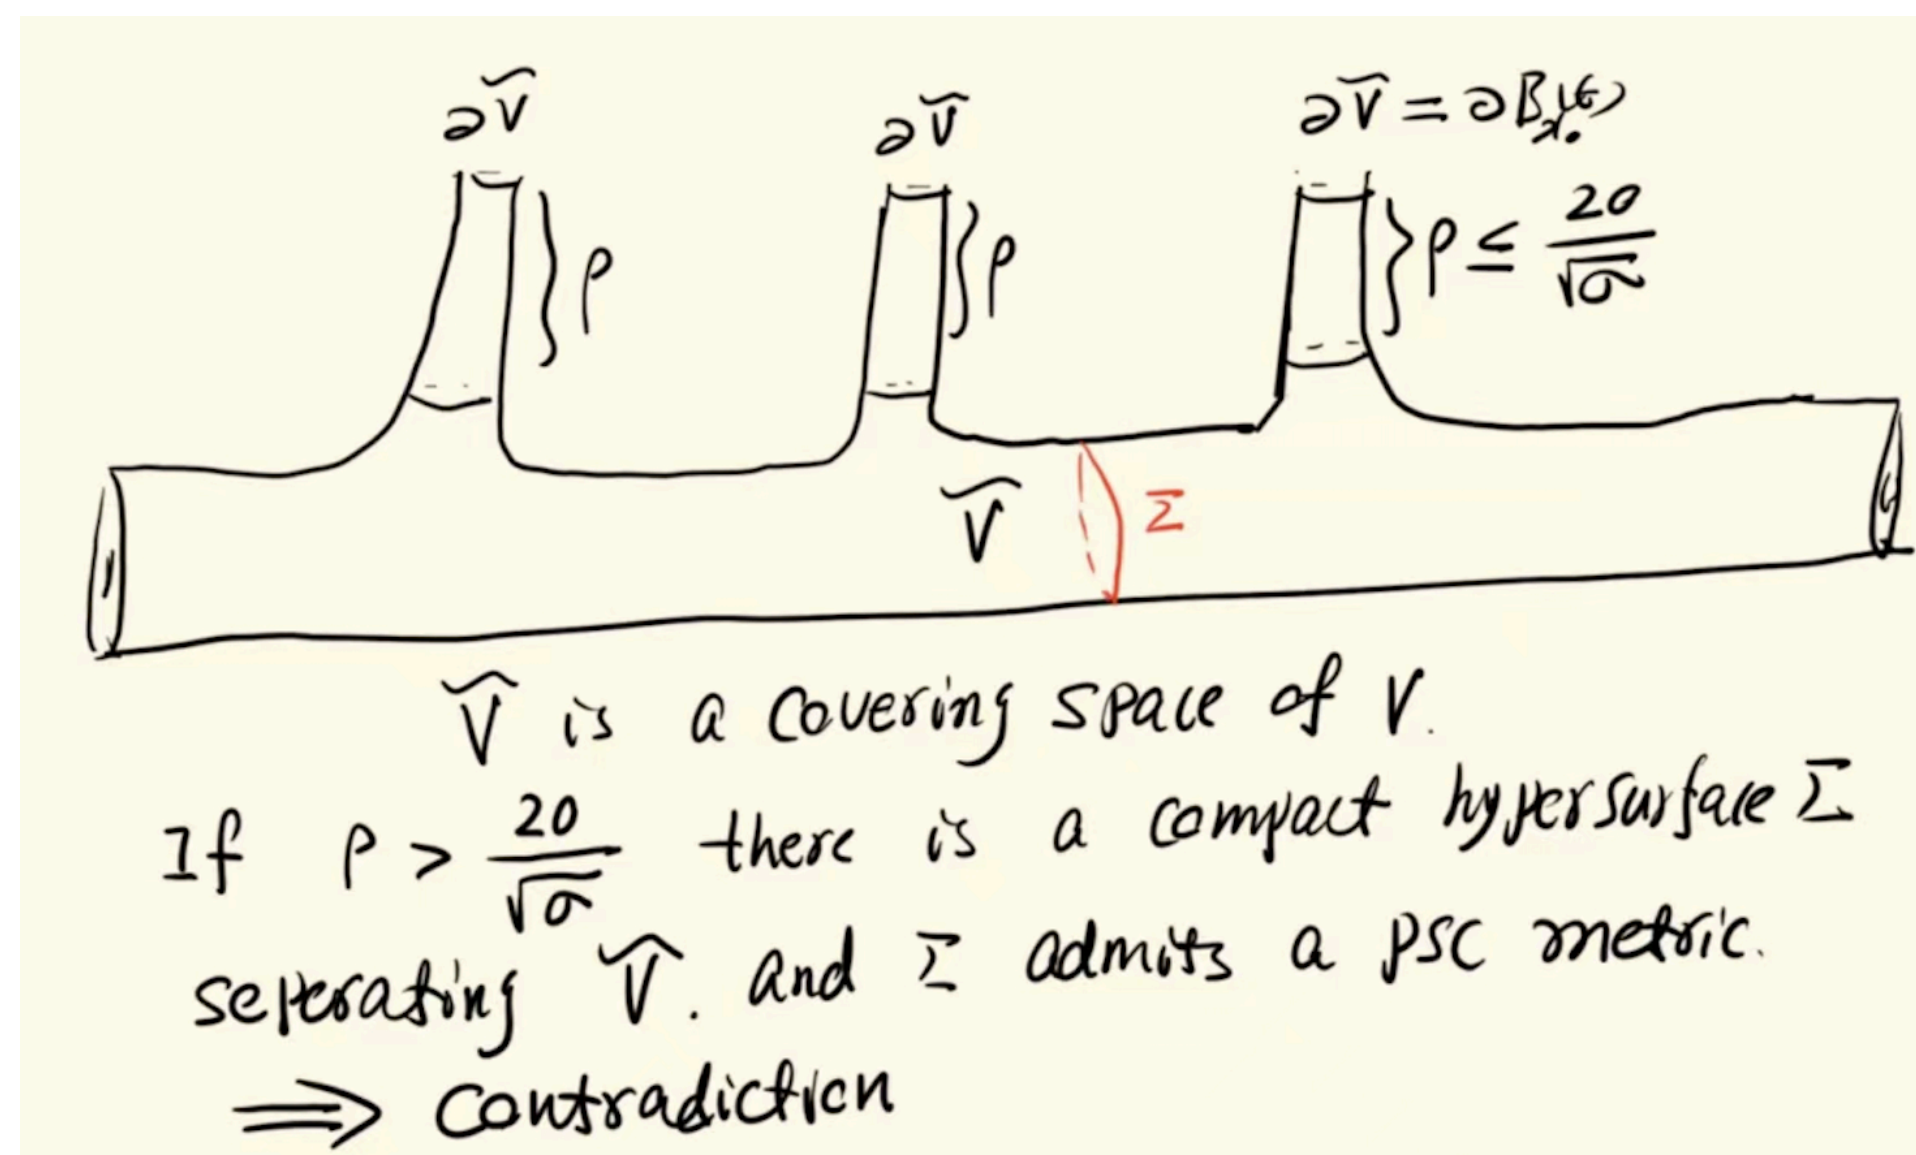 ∂Ṽ
∂Ṽ
∂Ṽ = ∂B_{x₀}(ε)
} ρ
} ρ
} ρ ≤ 20/√σ
Ṽ
Σ
Ṽ is a covering space of V.
If ρ > 20/√σ there is a compact hypersurface Σ
seperating Ṽ. and Σ admits a psc metric.
⟹ contradiction